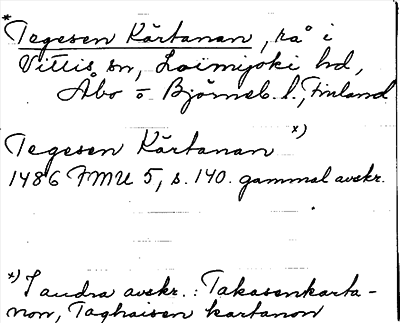 * Tegesen Kärtanan, rå i
Vittis sn, Loimijoki hd,
Åbo o Björneb. l., Finland
Tegesen Kärtanan x)
1486 FMU 5, s. 140. gammal avskr.
x) I andra avskr.: Takasenkarta-
non, Taghaisen kartanon